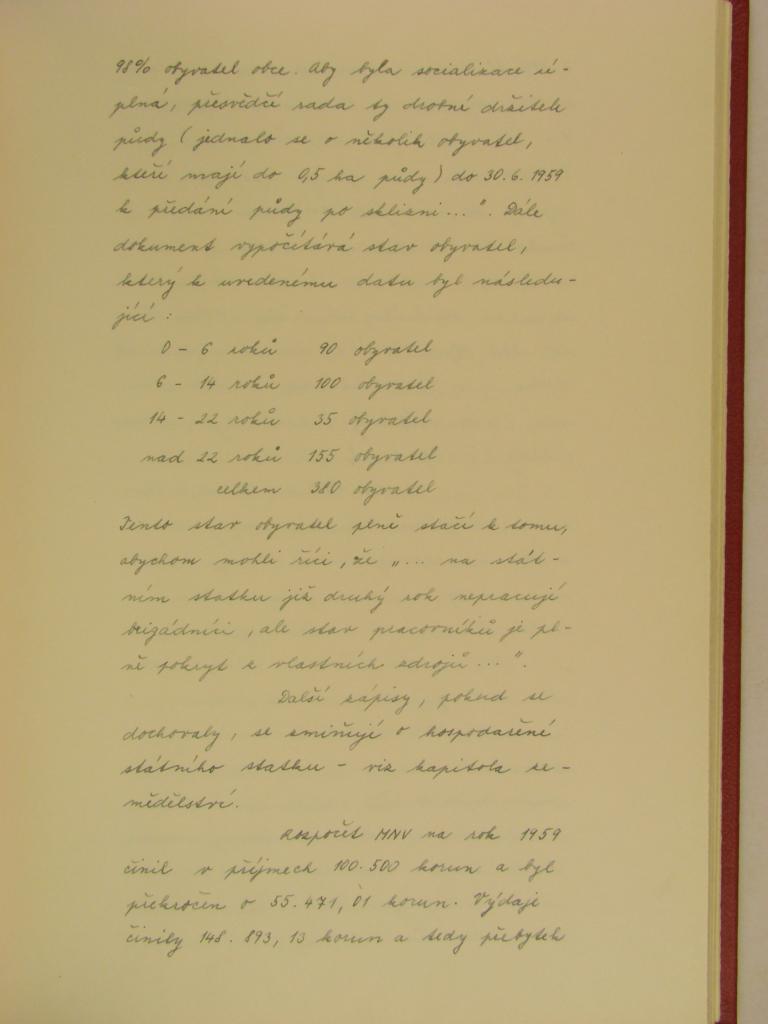 98% obyvatel obce. Aby byla socializace ú-
plná, přesvědčí rada ty drobné držitele
půdy (jednalo se o několik obyvatel,
kteří mají do 0,5 ha půdy) do 30.6.1959
k předání půdy po sklizni...". Dále
dokument vypočítává stav obyvatel,
který k uvedenému datu byl následu-
jící :
0 - 6 roků 90 obyvatel
6 - 14 roků 100 obyvatel
14 - 22 roků 35 obyvatel
nad 22 roků 155 obyvatel
celkem 380 obyvatel
Tento stav obyvatel plně stačí k tomu,
abychom mohli říci, že „... na stát-
ním statku již druhý rok nepracují
brigádníci, ale stav pracovníků je pl-
ně pokryt z vlastních zdrojů...".
Další zápisy, pokud se
dochovaly, se zmiňují o hospodaření
státního statku - viz kapitola ze-
mědělství.
Rozpočet MNV na rok 1959
činil v příjmech 100.500 korun a byl
překročen o 55.471,01 korun. Výdaje
činily 148.893,13 korun a tedy přebytek